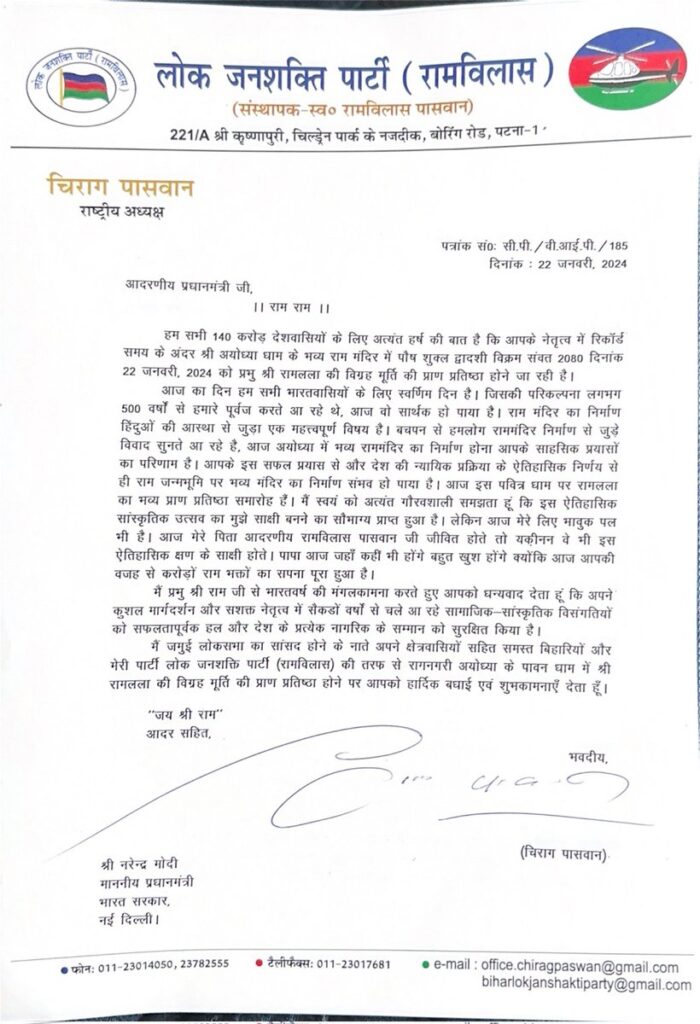 लोक जनशक्ति पार्टी (रामविलास)
लोक जनशक्ति पार्टी ( रामविलास )
(संस्थापक-स्व० रामविलास पासवान)
221/A श्री कृष्णापुरी, चिल्ड्रेन पार्क के नजदीक, बोरिंग रोड, पटना-1
चिराग पासवान
राष्ट्रीय अध्यक्ष
पत्रांक सं०: सी.पी./वी.आई.पी./185
दिनांक : 22 जनवरी, 2024
आदरणीय प्रधानमंत्री जी,
।। राम राम ।।
हम सभी 140 करोड़ देशवासियों के लिए अत्यंत हर्ष की बात है कि आपके नेतृत्व में रिकॉर्ड
समय के अंदर श्री अयोध्या धाम के भव्य राम मंदिर में पौष शुक्ल द्वादशी विक्रम संवत 2080 दिनांक
22 जनवरी, 2024 को प्रभु श्री रामलला की विग्रह मूर्ति की प्राण प्रतिष्ठा होने जा रही है।
आज का दिन हम सभी भारतवासियों के लिए स्वर्णिम दिन है। जिसकी परिकल्पना लगभग
500 वर्षो से हमारे पूर्वज करते आ रहे थे, आज वो सार्थक हो पाया है। राम मंदिर का निर्माण
हिंदुओं की आस्था से जुड़ा एक महत्त्वपूर्ण विषय है। बचपन से हमलोग राममंदिर निर्माण से जुड़े
विवाद सुनते आ रहे है, आज अयोध्या में भव्य राममंदिर का निर्माण होना आपके साहसिक प्रयासों
का परिणाम है। आपके इस सफल प्रयास से और देश की न्यायिक प्रक्रिया के ऐतिहासिक निर्णय से
ही राम जन्मभूमि पर भव्य मंदिर का निर्माण संभव हो पाया है। आज इस पवित्र धाम पर रामलला
का भव्य प्राण प्रतिष्ठा समारोह हैं। मैं स्वयं को अत्यंत गौरवशाली समझता हूं कि इस ऐतिहासिक
सांस्कृतिक उत्सव का मुझे साक्षी बनने का सौभाग्य प्राप्त हुआ है। लेकिन आज मेरे लिए भावुक पल
भी है। आज मेरे पिता आदरणीय रामविलास पासवान जी जीवित होते तो यकीनन वे भी इस
ऐतिहासिक क्षण के साक्षी होते। पापा आज जहाँ कहीं भी होंगे बहुत खुश होंगे क्योंकि आज आपकी
वजह से करोड़ों राम भक्तों का सपना पूरा हुआ है।
मैं प्रभु श्री राम जी से भारतवर्ष की मंगलकामना करते हुए आपको धन्यवाद देता हूं कि अपने
कुशल मार्गदर्शन और सशक्त नेतृत्व में सैकडों वर्षो से चले आ रहे सामाजिक-सांस्कृतिक विसंगतियों
को सफलतापूर्वक हल और देश के प्रत्येक नागरिक के सम्मान को सुरक्षित किया है।
मैं जमुई लोकसभा का सांसद होने के नाते अपने क्षेत्रवासियों सहित समस्त बिहारियों और
मेरी पार्टी लोक जनशक्ति पार्टी (रामविलास) की तरफ से रागनगरी अयोध्या के पावन धाम में श्री
रामलला की विग्रह मूर्ति की प्राण प्रतिष्ठा होने पर आपको हार्दिक बधाई एवं शुभकामनाएँ देता हूँ।
"जय श्री राम"
आदर सहित,
भवदीय,
(चिराग पासवान)
श्री नरेन्द्र मोदी
माननीय प्रधानमंत्री
भारत सरकार,
नई दिल्ली।
फोन: 011-23014050, 23782555 टैलीफैक्स: 011-23017681 e-mail : office.chiragpaswan@gmail.com
biharlokjanshaktiparty@gmail.com